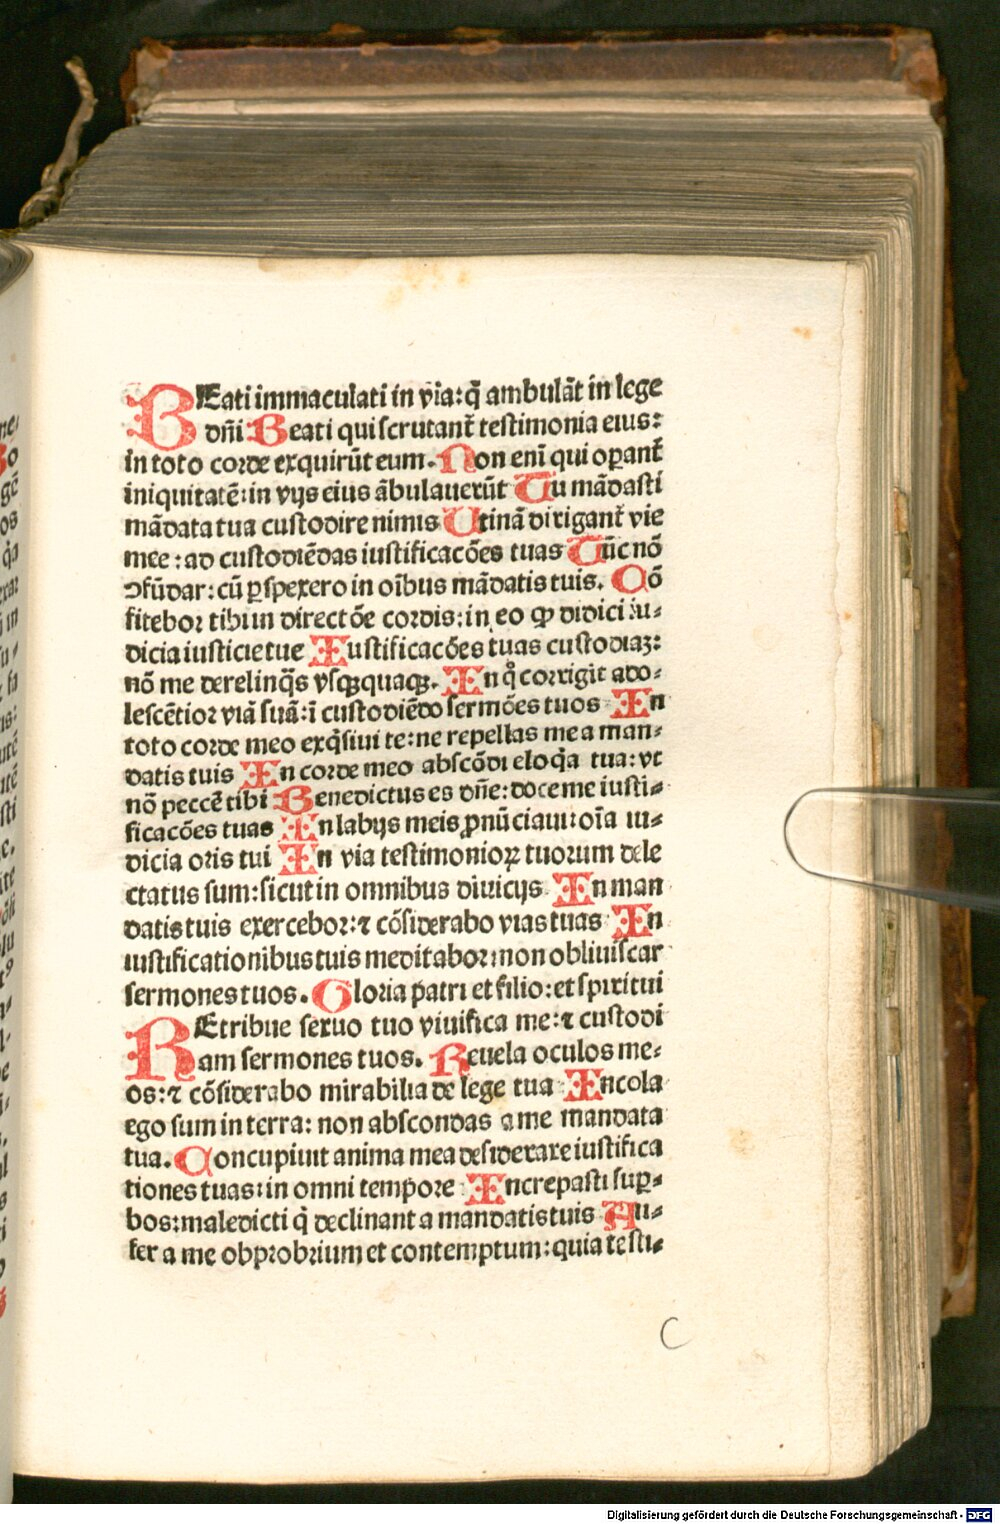 BEati immaculati in via: q̄ ambulāt in lege
dn̄i Beati qui scrutant̄ testimonia eius:
in toto corde exquirūt eum. Non enī qui oꝑant̄
iniquitatē: in vijs eius ābulauerūt Tu mādasti
mādata tua custodire nimis Utinā dirigant̄ vie
mee: ad custodiēdas iustificacōes tuas Tūc nō
ↄfūdar: cū ꝑspexero in oībus mādatis tuis. Cō
fitebor tibi in directōe cordis: in eo ꝙ didici iu-
dicia iusticie tue Iustificacōes tuas custodiaꝫ:
nō me derelinq̄s vsꝙquaꝙ. In qͦ corrigit ado-
lescētior viā suā: ī custodiēdo sermōes tuos In
toto corde meo exq̄siui te: ne repellas me a man-
datis tuis In corde meo abscōdi eloq̄a tua: vt
nō peccē tibi Benedictus es dn̄e: doce me iusti-
ficacōes tuas In labijs meis ꝓnūciaui: oīa iu-
dicia oris tui In via testimonioꝝ tuorum dele
ctatus sum: sicut in omnibus diuicijs In man
datis tuis exercebor: ⁊ cōsiderabo vias tuas In
iustificationibus tuis meditabor: non obliuiscar
sermones tuos. Gloria patri et filio: et spiritui
REtribue seruo tuo viuifica me: ⁊ custodi
am sermones tuos. Reuela oculos me-
os: ⁊ cōsiderabo mirabilia de lege tua Incola
ego sum in terra: non abscondas a me mandata
tua. Concupiuit anima mea desiderare iustifica
tiones tuas: in omni tempore Increpasti suꝑ-
bos: maledicti q̄ declinant a mandatis tuis Au-
fer a me obprobrium et contemptum: quia testi-
C
Digitalisierung gefördert durch die Deutsche Forschungsgemeinschaft - DFG